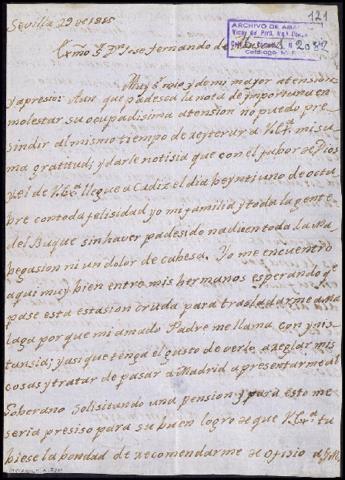 121
Sevilla 29 de 1815
ARCHIVO DE ABASCAL
Exmo Sr Dn Jose Fernando de Abascal
Muy Sr mio y de mi mayor atension
y apresio: Aun que padesca la nota de ymportuna en
molestar su ocupadisima atension no puedo pre
sindir al mismo tiempo de reyterar a V.E.a mi su
ma gratitud; y darle notisia que con el fabor de Dios
y el de V.E.a llegue a Cadiz el dia beynti uno de octu
bre con toda felisidad yo mi familia y toda la gente
del Buque sin haver padesido nadien toda la na
begasion ni un dolor de cabesa. Yo me encuentro
aqui muy bien entre mis hermanos esperando qe
pase esta estasion cruda para trasladarme a Ma
laga por que mi amado Padre me llama con ynis
tansia; y asi que tenga el gusto de verlo areglar mis
cosas y tratar de pasar a Madrid a presentarme al
Soberano Solisitando una pension y para esto me
seria presiso para su buen logro de que V.E.a tu
biese la bondad de recomendarme de ofisio a S.M.